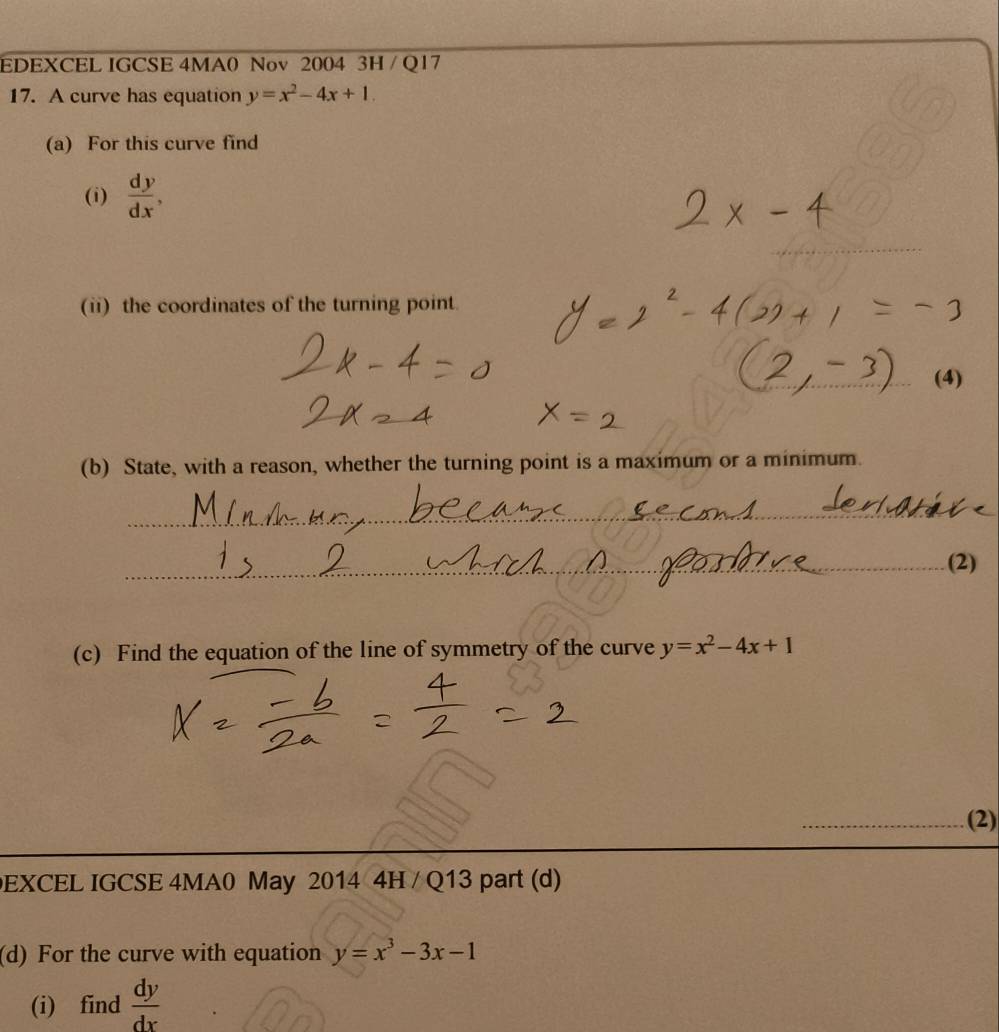 EDEXCEL IGCSE 4MA0 Nov 2004 3H / Q17
17. A curve has equation y = x² – 4x + 1.
(a) For this curve find
(i) dy/dx,
2x - 4
(ii) the coordinates of the turning point.
y = 2² - 4(2) + 1 = -3
2x - 4 = 0
(2, -3) (4)
2x = 4 x = 2
(b) State, with a reason, whether the turning point is a maximum or a minimum.
Minimum, because second derivative
is 2 which is positive (2)
(c) Find the equation of the line of symmetry of the curve y = x² – 4x + 1
x = -b/2a = 4/2 = 2
(2)
DEXCEL IGCSE 4MA0 May 2014 4H / Q13 part (d)
(d) For the curve with equation y = x³ – 3x – 1
(i) find dy/dx
AMIN +966